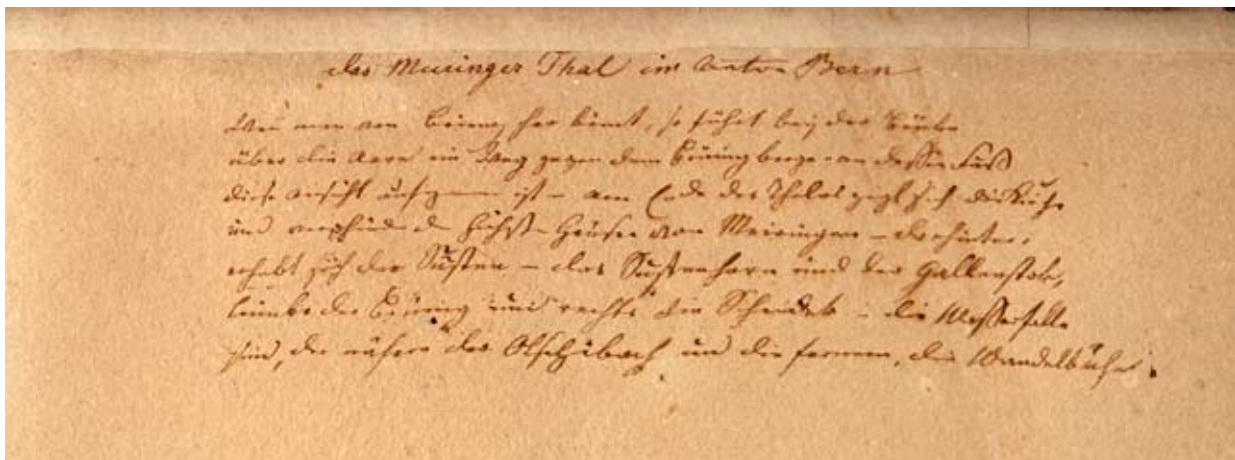 das Meiringer Thal im Canton Bern
Wen man von Brienz her kömt, so führt bey der Brüke
über die Aare ein Weg gegen dem Brünig berge – an dessen Fuß
diese Ansicht aufgenommen ist – am Ende des Thales zeigt sich die Kirche
und verschiedene Häuser von Meiringen – dahinter
erhebt sich der Susten – das Sustenhorn und der Gallenstok,
links der Brünig und rechts die Scheidek – die Wasserfälle
sind, der nähere der Oltschibach und die fernern, die Wandelbäche.